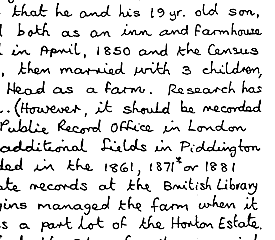 that he and his 19yr. old son,
both as an inn and farmhouse
in April, 1850 and the Census
, then married with 3 children,
Head as a farm. Research has
.(However, it should be recorded
Public Record Office in London
additional fields in Piddington
ded in the 1861, 1871* or 1881
ate records at the British Library
gins managed the farm when it
s a part lot of the Horton Estate